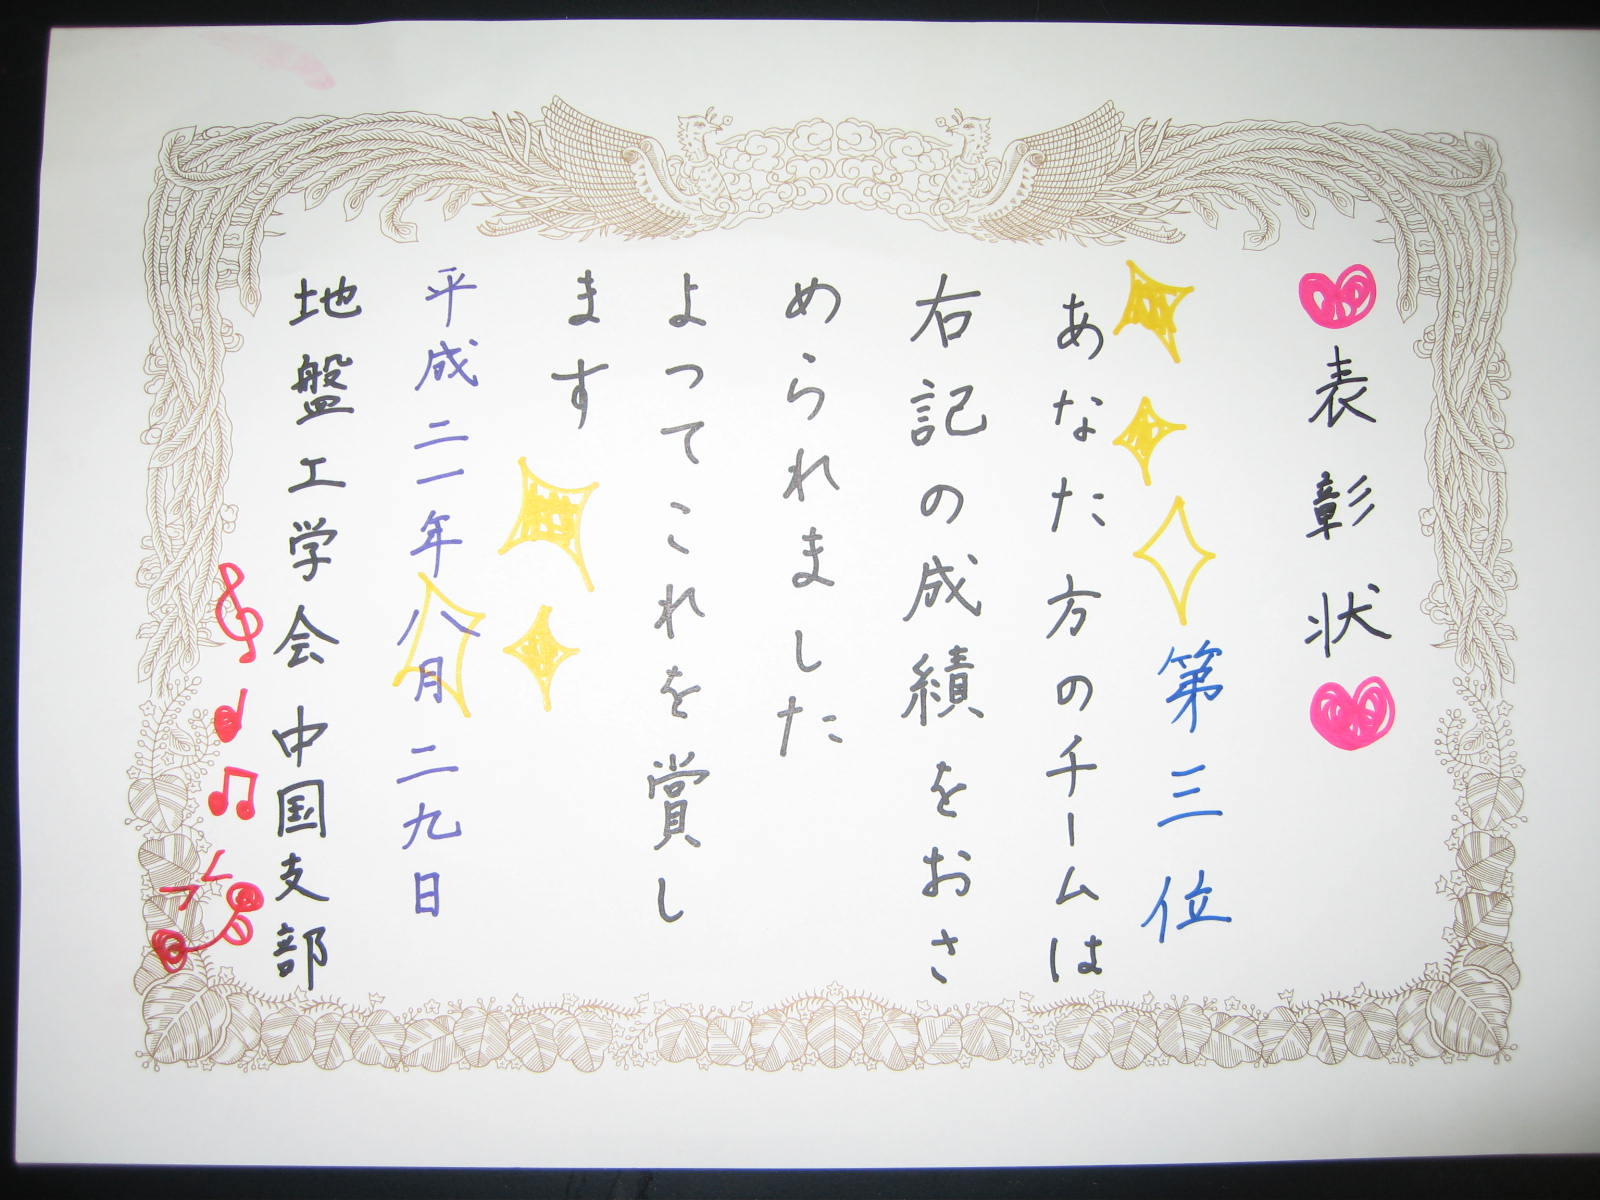 表彰状
第三位
あなた方のチームは
右記の成績をおさ
められました
よってこれを賞し
ます
平成二一年八月二九日
地盤工学会中国支部